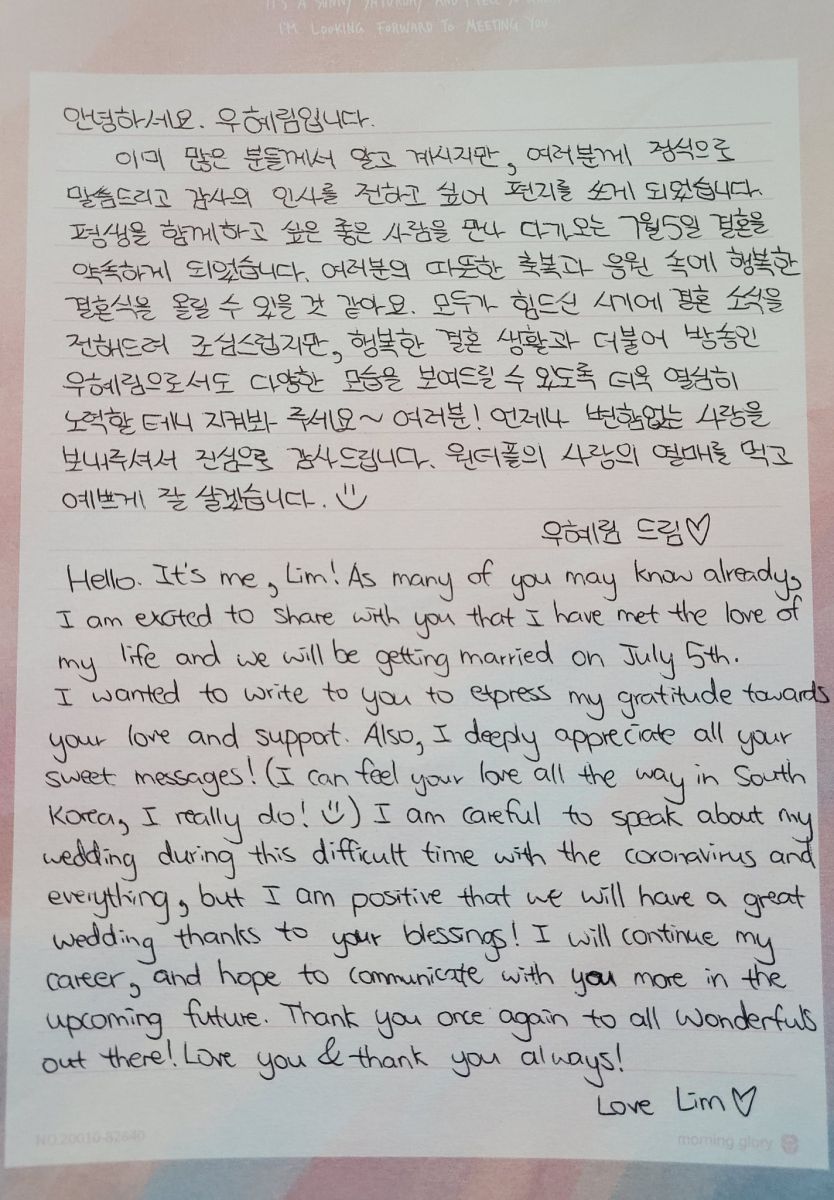 I'M LOOKING FORWARD TO MEETING YOU
안녕하세요. 우혜림입니다.
이미 많은 분들께서 알고 계시지만, 여러분께 정식으로
말씀드리고 감사의 인사를 전하고 싶어 편지를 쓰게 되었습니다.
평생을 함께하고 싶은 좋은 사람을 만나 다가오는 7월5일 결혼을
약속하게 되었습니다. 여러분의 따뜻한 축복과 응원 속에 행복한
결혼식을 올릴 수 있을 것 같아요. 모두가 힘드신 시기에 결혼 소식을
전해드려 조심스럽지만, 행복한 결혼 생활과 더불어 방송인
우혜림으로서도 다양한 모습을 보여드릴 수 있도록 더욱 열심히
노력할 테니 지켜봐 주세요~ 여러분! 언제나 변함없는 사랑을
보내주셔서 진심으로 감사드립니다. 원더풀의 사랑의 열매를 먹고
예쁘게 잘 살겠습니다. :)
우혜림 드림♡
Hello. It's me, Lim! As many of you may know already,
I am excited to share with you that I have met the love of
my life and we will be getting married on July 5th.
I wanted to write to you to express my gratitude towards
your love and support. Also, I deeply appreciate all your
sweet messages! (I can feel your love all the way in South
Korea, I really do! :)) I am careful to speak about my
wedding during this difficult time with the coronavirus and
everything, but I am positive that we will have a great
wedding thanks to your blessings! I will continue my
career, and hope to communicate with you more in the
upcoming future. Thank you once again to all Wonderfuls
out there! Love you & thank you always!
Love Lim♡
NO.20010-82640
morning glory